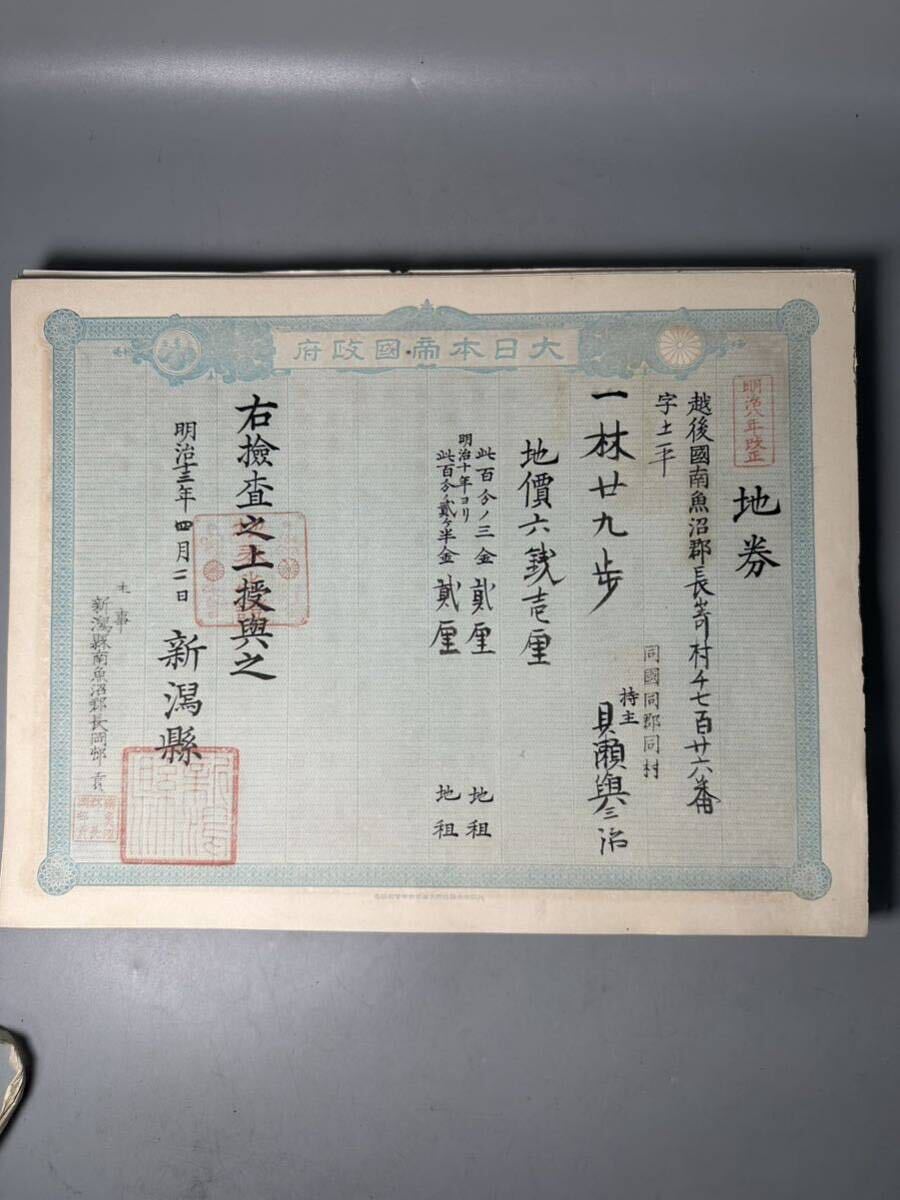 大日本帝國政府
明治八年改正
地券
越後國南魚沼郡長嵜村千七百廿六番
字土平
同國同郡同村
一林廿九歩
持主 貝瀬與三治
地價六銭壱厘
此百分ノ三金貮厘 地租
明治十年ヨリ
此百分ノ貮ヶ半金貮厘 地租
右撿査之上授與之
明治十三年四月二日 新潟縣
主事
新潟縣南魚沼郡長岡邨